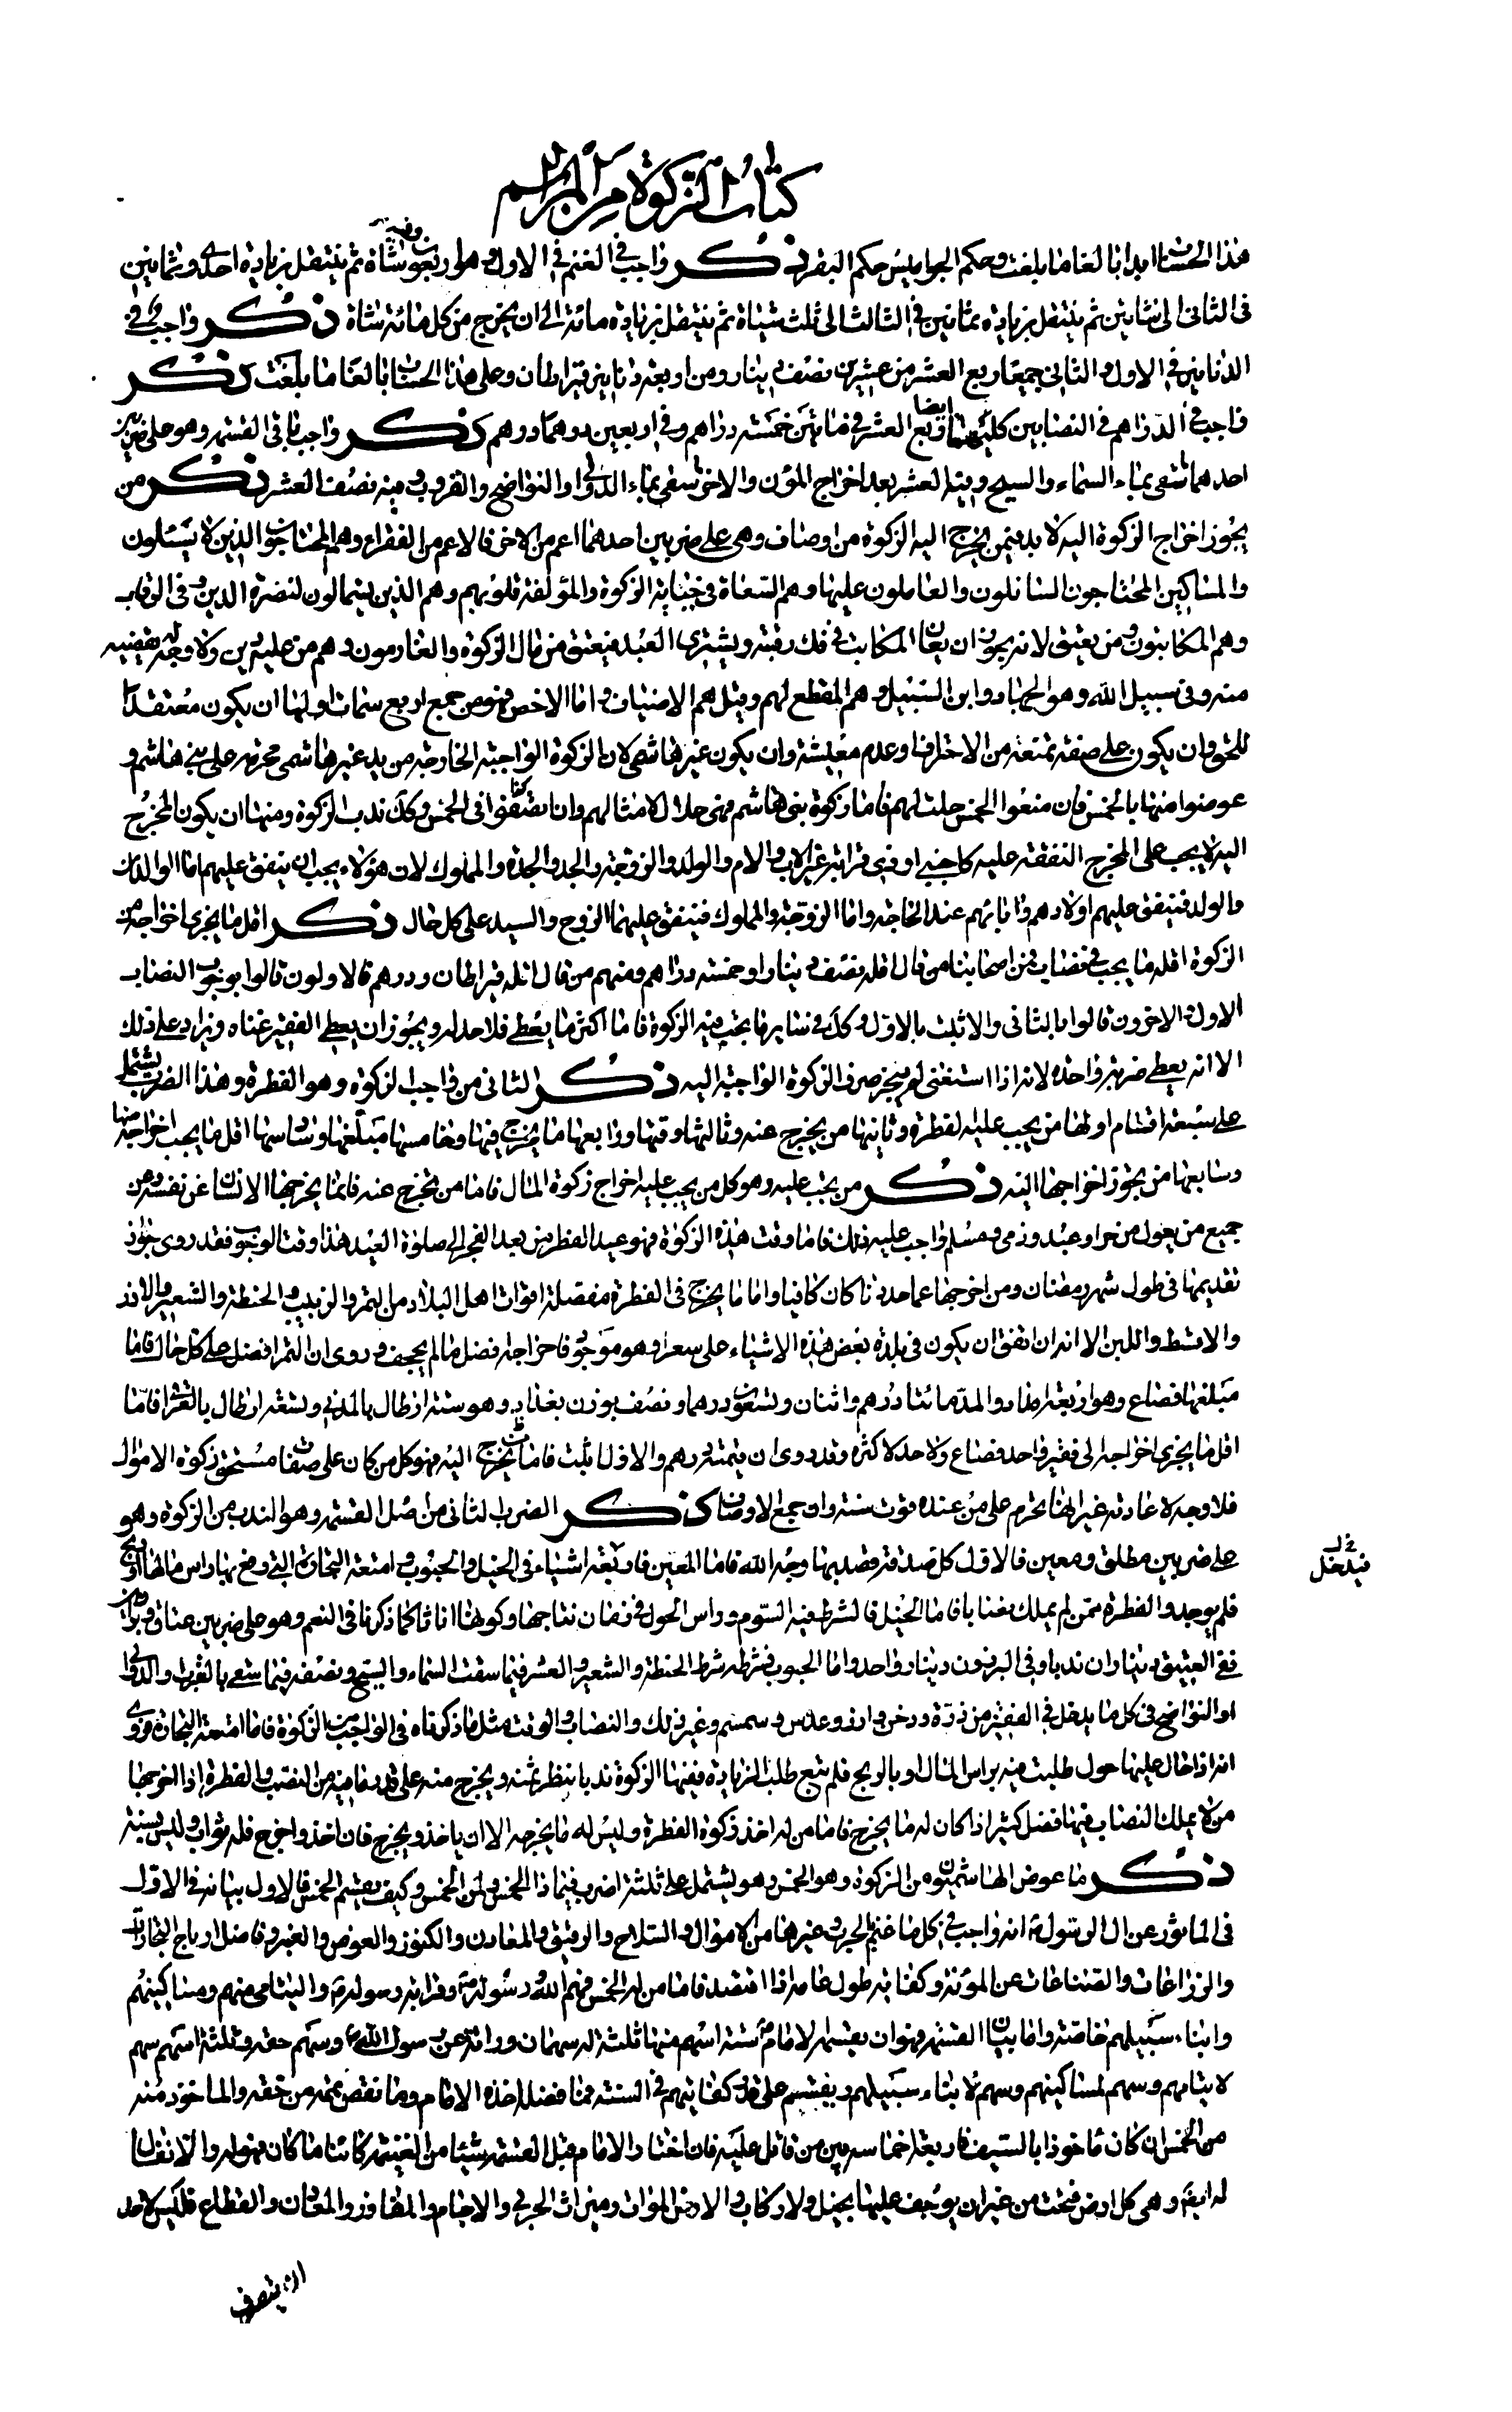 كتاب الزكوة من المراسم
هذا الحساب ابدا بالغا ما بلغت وحكم الجواميس حكم البقر ذكر واجب في الغنم في الاول وهو اربعون شاة ثم ينتقل بزيادة احدى وثمانين
في الثاني الى شاتين ثم ينتقل بزيادة ثمانين في الثالث الى ثلث شياة ثم ينتقل بزيادة مائة الى ان يخرج من كل مائة شاة ذكر واجب في
الدنانير في الاول والثاني جميعا ربع العشر من عشرين نصف دينار ومن اربعة دنانير قيراطان وعلى هذا الحساب بالغا ما بلغت ذكر
واجب في الدراهم في النصابين كليهما ايضا ربع العشر في مأتين خمسة دراهم وفي اربعين درهما درهم ذكر واجب باقي القسمة وهو على ضربين
احدهما سقى بماء السماء والسيح وفيه العشر بعد اخراج المؤن والاخر سقى بماء الدوالى او النواضح والغروب وفيه نصف العشر ذكر من
يجوز اخراج الزكوة اليه لا بد فيمن يخرج اليه الزكوة من اوصاف وهي على ضربين احدهما اعم من الاخر فالاعم من الفقراء وهم المحتاجون الذين لا يسئلون
والمساكين المحتاجون السائلون والعاملون عليها وهم السعاة في جباية الزكوة والمؤلفة قلوبهم وهم الذين يتمالون لنصرة الدين وفي الرقاب
وهم المكاتبون ومن يعتق لانه يجوز ان يعان المكاتب في فك رقبته ويشترى العبد فيعتق من مال الزكوة والغارمون وهم من عليه دين ولا وجه له يقضيه
منه وفي سبيل الله وهو الجهاد وابن السبيل وهم المنقطع لهم وقيل هم الاضياف واما الاخص فهو من جمع اربع سمات اولها ان يكون معتقدا
للحق وان يكون على صفة تمنعه من الاحتراف او عدم معيشة وان يكون غير هاشمي لان الزكوة الواجبة الخارجة من يد غير هاشمي محرمة على بني هاشم و
عوضوا منها بالخمس فان منعوا الخمس حلت لهم فاما زكوة بني هاشم فهي حلال لامثالهم وان تصرفوا في الخمس وكذا ندب الزكوة ومنها ان يكون المخرج
اليه لا يجب على المخرج النفقة عليه كاجنبي او ذي قرابة غير الاب والام والولد والزوجة والجد والجدة والمملوك لان هؤلاء يجب ان ينفق عليهم اما الوالدان
والولد فينفق عليهم اولادهم وآباؤهم عند الحاجة واما الزوجة والمملوك فينفق عليهما الزوج والسيد على كل حال ذكر اقل ما يجزي اخراجه من
الزكوة اقله ما يجب في نصاب فمن اصحابنا من قال اقله نصف دينار او خمسة دراهم ومنهم من قال اقله قيراطان ودرهم فالاولون قالوا بوجوب النصاب
الاول والاخرون قالوا بالثاني والاثبت بالاول وكذا في سائر ما يجب فيه الزكوة فاما اكثر ما يعطى فلا حد له ويجوز ان يعطى الفقير غناه ويزاد على ذلك
الا انه يعطى ضربة واحدة لانه اذا استغنى لم يجز صرف الزكوة الواجبة اليه ذكر الثاني من واجب الزكوة وهو الفطرة وهذا الضرب يشتمل
على سبعة اقسام اولها من يجب عليه الفطرة وثانيها من يخرج عنه وثالثها وقتها ورابعها ما يخرج فيها وخامسها مبلغها وسادسها اقل ما يجب اخراجه منها
وسابعها من يجوز اخراجها اليه ذكر من يجب عليه وهو كل من يجب عليه اخراج زكوة المال فاما من يخرج عنه فانما يخرجها الانسان عن نفسه وعن
جميع من يعول من حر او عبد وذمي ومسلم واجب عليه ذلك فاما وقت هذه الزكوة فهو عيد الفطر من بعد الفجر الى صلوة العيد هذا وقت الوجوب فقد روى جواز
تقديمها في طول شهر رمضان ومن اخرجها عما حددناه كان كافيا واما ما يخرج في الفطرة مفصلة اقوات اهل البلاد من التمر والزبيب والحنطة والشعير والارز
والاقط واللبن الا انه ان اتفق ان يكون في بلدة بعض هذه الاشياء على سعر او هو موجود فاخراجه افضل ما لم يجحف وروى ان التمر افضل على كل حال فاما
مبلغها فصاع وهو اربعة امداد والمد مائتا درهم واثنان وتسعون درهما ونصف بوزن بغداد وهو ستة ارطال بالمدني وتسعة ارطال بالعراقي فاما
اقل ما يجزي اخراجه الى فقير واحد فصاع ولا حد لاكثره وقد روى ان قيمته درهم والاول اثبت فاما من يخرج اليه فهو كل من كان على صفات مستحق زكوة الاموال
فلا وجه لاعادته غير انها تحرم على من عنده قوت سنة وان جمع الاوصاف ذكر الضرب الثاني من اصل القسمة وهو الندب من الزكوة وهو
على ضربين مطلق ومعين فالاول كل صدقة قصد بها وجه الله فاما المعين فاربعة اشياء في الخيل والحبوب وامتعة التجارة التي وضع بها راس مالها او ربح
فلم يوجد والفطرة ممن لم يملك نصابا فاما الخيل فالشرط فيه السوم وراس الحول في زمان نتاجها وكونها اناثا كما ذكرنا في النعم وهو على ضربين عتاق وبراذين
ففي العتيق ديناران ندبا وفي البرذون دينار واحد واما الحبوب فشرطه شرط الحنطة والشعير والعشر فيما سقت السماء والسيح ونصفه فيما سقى بالغرب والدوالى
او النواضح في كل ما يدخل في القفيز من ذرة ودخن وارز وعدس وسمسم وغير ذلك والنصاب والوقت مثل ما ذكرناه في الواجب من الزكوة فاما امتعة التجارة فروى
انه اذا حال عليها حول طلبت فيه براس المال او بالربح فلم تبع طلبا لزيادة ففيها الزكوة ندبا ينظر ثمنه ويخرج منه على قدر ما فيه من النصب والفطرة اذا اخرجها
من لا يملك النصاب فيها فضل كثير اذا كان له ما يخرج فاما من له اخذ زكوة الفطرة وليس له ما يخرجه الا ان ياخذ ويخرج فان اخذ واخرج فله ثواب وليس بسنة
ذكر ما عوض الهاشميون من الزكوة وهو الخمس وهو يشتمل على ثلثة اضرب فيما ذا الخمس ولمن الخمس وكيف يقسم الخمس فالاول بيانه في الاول
في المأثور عن ال الرسول ع انه واجب في كل ما غنم بالحرب وغيرها من الاموال والسلاح والرقيق والمعادن والكنوز والغوص والعنبر وفاضل ارباح التجارات
والزراعات والصناعات عن المؤنة وكفاية طول عامه اذا اقتصد فاما من له الخمس فهم الله ورسوله وقرابة رسوله واليتامى منهم ومساكينهم
وابناء سبيلهم خاصة واما بيان القسمة فهو ان يقسمه الامام ستة اسهم منها ثلثة له سهمان وراثة عن رسول الله وسهم حقه وثلثة اسهم سهم
لايتامهم وسهم لمساكينهم وسهم لابناء سبيلهم ويقسم على قدر كفايتهم في السنة فما فضل اخذه الامام وما نقص تممه من حقه والماخوذ منه
من الخمس ان كان ماخوذا بالسيف فاربعة اخماسه بين من قاتل عليه فان اختار الامام قبل القسمة شيئا من الغنيمة كائنا ما كان فهو له والانفال
له ايضا وهي كل ارض فتحت من غير ان يوجف عليها بخيل ولا ركاب والارض الموات وميراث الحربي والاجام والمفاوز والمعادن والقطايع فليس لاحد
ان يتصرف